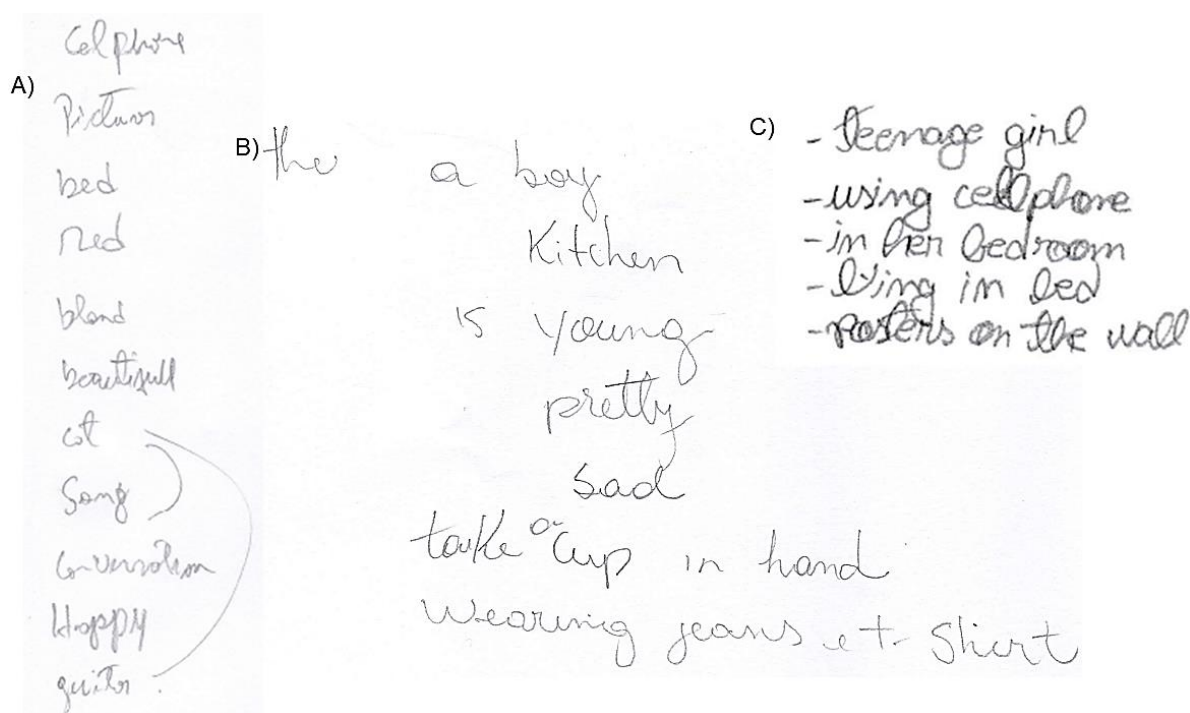 A)
Celphone
Pictures
bed
Red
blond
beautifull
cat
Song
Conversation
Happy
guitar.
B)
the a boy
Kitchen
is young
pretty
sad
take a Cup in hand
Wearing jeans et t- Shirt
C)
- teenage girl
- using cellphone
- in her bedroom
- lying in bed
- posters on the wall